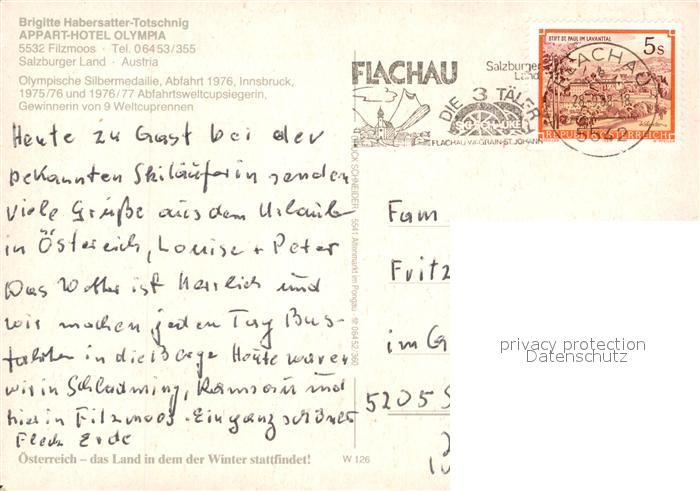 Brigitte Habersatter-Totschnig
APPART-HOTEL OLYMPIA
5532 Filzmoos · Tel. 06453/355
Salzburger Land · Austria
Olympische Silbermedailie, Abfahrt 1976, Innsbruck,
1975/76 und 1976/77 Abfahrtsweltcupsiegerin,
Gewinnerin von 9 Weltcuprennen
Heute zu Gast bei der
bekannten Skiläuferin senden
viele Grüße aus dem Urlaub
in Österreich, Louise + Peter
Das Wetter ist herrlich und
wir machen jeden Tag Bus-
fahrten in die Berge Heute waren
wir in Schladming, Ramsau und
hier in Filzmoos. Ein ganz schöner
Fleck Erde
Österreich – das Land in dem der Winter stattfindet!
W 126
DRUCK SCHNEIDER 5541 Altenmarkt im Pongau ☎ 06452/360
FLACHAU
Salzburger
Land
DIE 3 TÄLER
SKISCHAUKEL
FLACHAU WAGRAIN ST. JOHANN
STIFT ST. PAUL IM LAVANTTAL
5s
REPUBLIK ÖSTERREICH
FLACHAU
5542
Fam
Fritz
im G
5205 S
privacy protection
Datenschutz